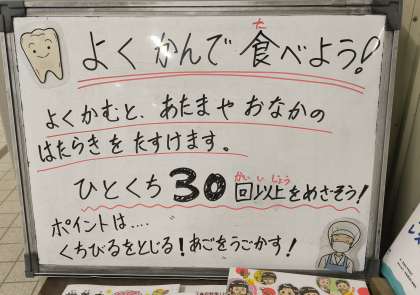 よく かんで 食べよう!
た
よくかむと、あたまや おなかの
はたらきを たすけます。
ひとくち 30 回以上をめざそう!
かい いじょう
ポイントは....
くちびるをとじる!あごをうごかす!